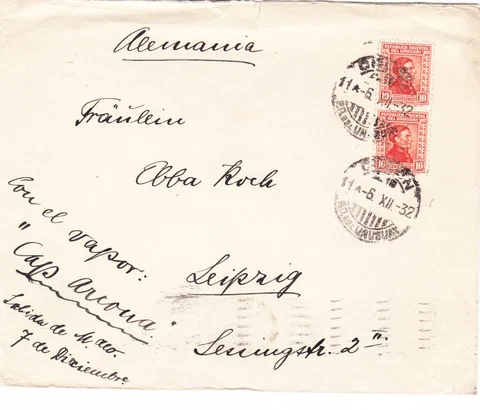 Alemania
REPUBLICA ORIENTAL
DEL URUGUAY
10 10
REPUBLICA ORIENTAL
DEL URUGUAY
10 10
11 A-6 XII-32
11 A-6 XII-32
Fräulein
Abba Koch
Leipzig
Lessingstr. 2 II.
Con el vapor:
"Cap Arcona"
Salida de Mdeo.
7 de Diciembre